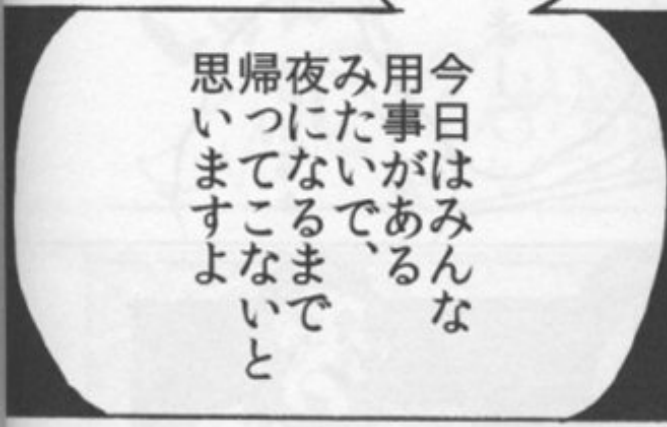 今日はみんな
用事がある
みたいで、
夜になるまで
帰ってこないと
思いますよ